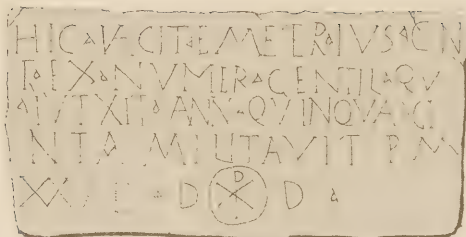 HIC · V CIT · EMETERIVS · CN
R · EX · NVMER · GENTIL · QV
VIXIT · ANN · QVINQVAGI
NTA MILITAVIT P M
XX D D D